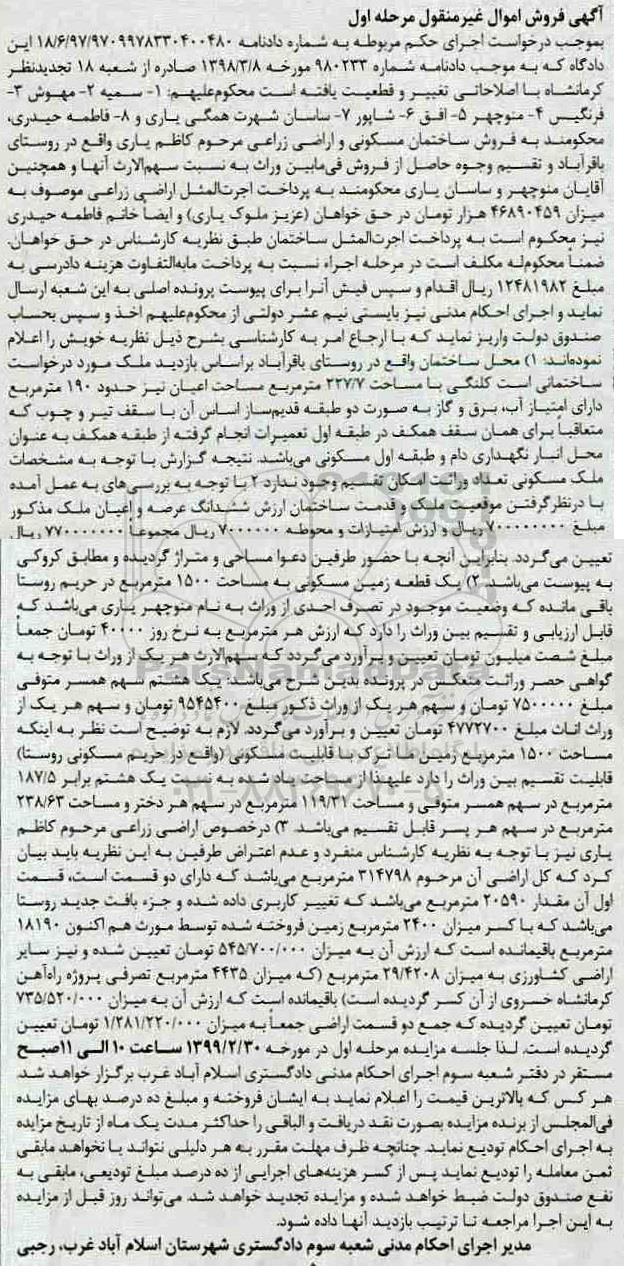 آگهی فروش اموال غیرمنقول مرحله اول
بموجب درخواست اجرای حکم مربوطه به شماره دادنامه ۱۸/۶/۹۷/۹۷۰۹۹۷۸۳۳۰۴۰۰۴۸۰ این
دادگاه که به موجب دادنامه شماره ۹۸۰۲۳۳ مورخه ۱۳۹۸/۳/۸ صادره از شعبه ۱۸ تجدیدنظر
کرمانشاه با اصلاحاتی تغییر و قطعیت یافته است محکوم‌علیهم: ۱- سمیه ۲- مهوش ۳-
فرنگیس ۴- منوچهر ۵- افق ۶- شاپور ۷- ساسان شهرت همگی یاری و ۸- فاطمه حیدری،
محکومند به فروش ساختمان مسکونی و اراضی زراعی مرحوم کاظم یاری واقع در روستای
باقرآباد و تقسیم وجوه حاصل از فروش فی‌مابین وراث به نسبت سهم‌الارث آنها و همچنین
آقایان منوچهر و ساسان یاری محکومند به پرداخت اجرت‌المثل اراضی زراعی موصوف به
میزان ۴۶۸۹۰۴۵۹ هزار تومان در حق خواهان (عزیز ملوک یاری) و ایضاً خانم فاطمه حیدری
نیز محکوم است به پرداخت اجرت‌المثل ساختمان طبق نظریه کارشناس در حق خواهان.
ضمناً محکوم‌له مکلف است در مرحله اجراء نسبت به پرداخت مابه‌التفاوت هزینه دادرسی به
مبلغ ۱۲۴۸۱۹۸۲ ریال اقدام و سپس فیش آنرا برای پیوست پرونده اصلی به این شعبه ارسال
نماید و اجرای احکام مدنی نیز بایستی نیم عشر دولتی از محکوم‌علیهم اخذ و سپس بحساب
صندوق دولت واریز نماید که با ارجاع امر به کارشناسی بشرح ذیل نظریه خویش را اعلام
نموده‌اند: ۱) محل ساختمان واقع در روستای باقرآباد براساس بازدید ملک مورد درخواست
ساختمانی است کلنگی با مساحت ۲۲۷/۷ مترمربع مساحت اعیان نیز حدود ۱۹۰ مترمربع
دارای امتیاز آب، برق و گاز به صورت دو طبقه قدیم‌ساز اساس آن با سقف تیر و چوب که
متعاقبا برای همان سقف همکف در طبقه اول تعمیرات انجام گرفته از طبقه همکف به عنوان
محل انبار نگهداری دام و طبقه اول مسکونی می‌باشد. نتیجه گزارش با توجه به مشخصات
ملک مسکونی تعداد وراثت امکان تقسیم وجود ندارد ۲ با توجه به بررسی‌های به عمل آمده
با درنظرگرفتن موقعیت ملک و قدمت ساختمان ارزش ششدانگ عرصه و اعیان ملک مذکور
مبلغ ۷۰۰۰۰۰۰۰۰ ریال و ارزش امتیازات و محوطه ۷۰۰۰۰۰۰ ریال مجموعاً ۷۷۰۰۰۰۰۰۰ ریال
تعیین می‌گردد. بنابراین آنچه با حضور طرفین دعوا مساحی و متراژ گردیده و مطابق کروکی
به پیوست می‌باشد. ۲) یک قطعه زمین مسکونی به مساحت ۱۵۰۰ مترمربع در حریم روستا
باقی مانده که وضعیت موجود در تصرف احدی از وراث به نام منوچهر یاری می‌باشد که
قابل ارزیابی و تقسیم بین وراث را دارد که ارزش هر مترمربع به نرخ روز ۴۰۰۰۰ تومان جمعاً
مبلغ شصت میلیون تومان تعیین و برآورد می‌گردد که سهم‌الارث هر یک از وراث با توجه به
گواهی حصر وراثت منعکس در پرونده بدین شرح می‌باشد: یک هشتم سهم همسر متوفی
مبلغ ۷۵۰۰۰۰۰ تومان و سهم هر یک از وراث ذکور مبلغ ۹۵۴۵۴۰۰ تومان و سهم هر یک از
وراث اناث مبلغ ۴۷۷۲۷۰۰ تومان تعیین و برآورد می‌گردد. لازم به توضیح است نظر به اینکه
مساحت ۱۵۰۰ مترمربع زمین ماترک با قابلیت مسکونی (واقع در حریم مسکونی روستا)
قابلیت تقسیم بین وراث را دارد علیهذا از مساحت یاد شده به نسبت یک هشتم برابر ۱۸۷/۵
مترمربع در سهم همسر متوفی و مساحت ۱۱۹/۳۱ مترمربع در سهم هر دختر و مساحت ۲۳۸/۶۳
مترمربع در سهم هر پسر قابل تقسیم می‌باشد. ۳) درخصوص اراضی زراعی مرحوم کاظم
یاری نیز با توجه به نظریه کارشناس منفرد و عدم اعتراض طرفین به این نظریه باید بیان
کرد که کل اراضی آن مرحوم ۳۱۴۷۹۸ مترمربع می‌باشد که دارای دو قسمت است، قسمت
اول آن مقدار ۲۰۵۹۰ مترمربع می‌باشد که تغییر کاربری داده شده و جزء بافت جدید روستا
می‌باشد که با کسر میزان ۲۴۰۰ مترمربع زمین فروخته شده توسط مورث هم اکنون ۱۸۱۹۰
مترمربع باقیمانده است که ارزش آن به میزان ۵۴۵/۷۰۰/۰۰۰ تومان تعیین شده و نیز سایر
اراضی کشاورزی به میزان ۲۹/۴۲۰۸ مترمربع (که میزان ۴۴۳۵ مترمربع تصرفی پروژه راه‌آهن
کرمانشاه خسروی از آن کسر گردیده است) باقیمانده است که ارزش آن به میزان ۷۳۵/۵۲۰/۰۰۰
تومان تعیین گردیده که جمع دو قسمت اراضی جمعاً به میزان ۱/۲۸۱/۲۲۰/۰۰۰ تومان تعیین
گردیده است. لذا جلسه مزایده مرحله اول در مورخه ۱۳۹۹/۲/۳۰ ساعت ۱۰ الی ۱۱صبح
مستقر در دفتر شعبه سوم اجرای احکام مدنی دادگستری اسلام آباد غرب برگزار خواهد شد.
هر کس که بالاترین قیمت را اعلام نماید به ایشان فروخته و مبلغ ده درصد بهای مزایده
فی‌المجلس از برنده مزایده بصورت نقد دریافت و الباقی را حداکثر مدت یک ماه از تاریخ مزایده
به اجرای احکام تودیع نماید. چنانچه ظرف مهلت مقرر به هر دلیلی نتواند یا نخواهد مابقی
ثمن معامله را تودیع نماید پس از کسر هزینه‌های اجرایی از ده درصد مبلغ تودیعی، مابقی به
نفع صندوق دولت ضبط خواهد شده و مزایده تجدید خواهد شد. می‌تواند روز قبل از مزایده
به این اجرا مراجعه تا ترتیب بازدید آنها داده شود.
مدیر اجرای احکام مدنی شعبه سوم دادگستری شهرستان اسلام آباد غرب، رجبی